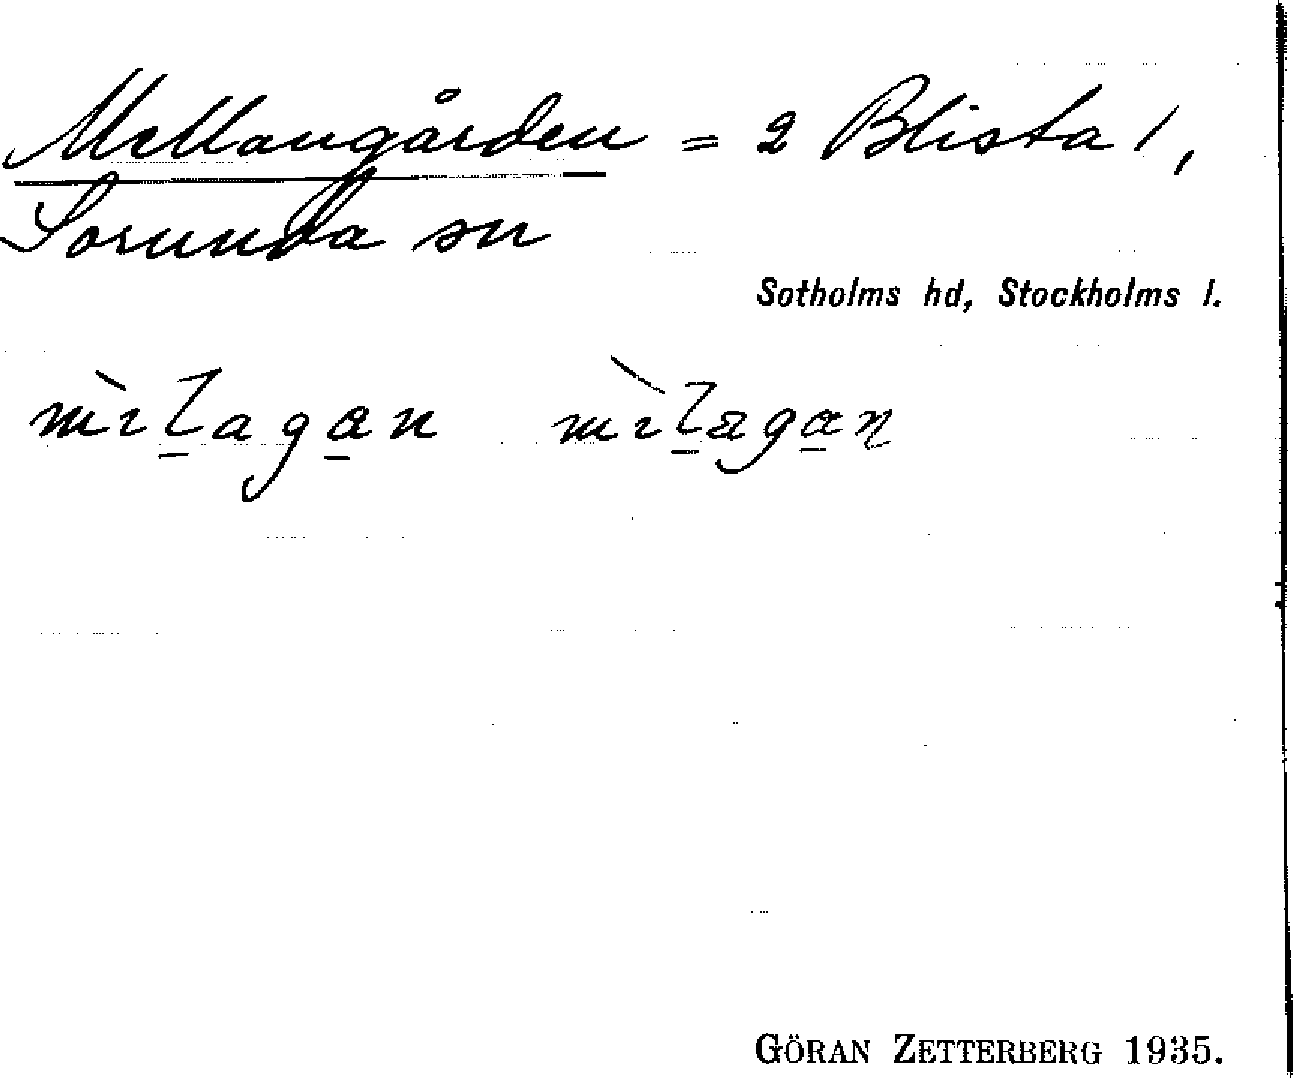 Mellangården = 2 Blista 1,
Sorunda sn
Sotholms hd, Stockholms l.
mìlagan mìlagan
GÖRAN ZETTERBERG 1935.